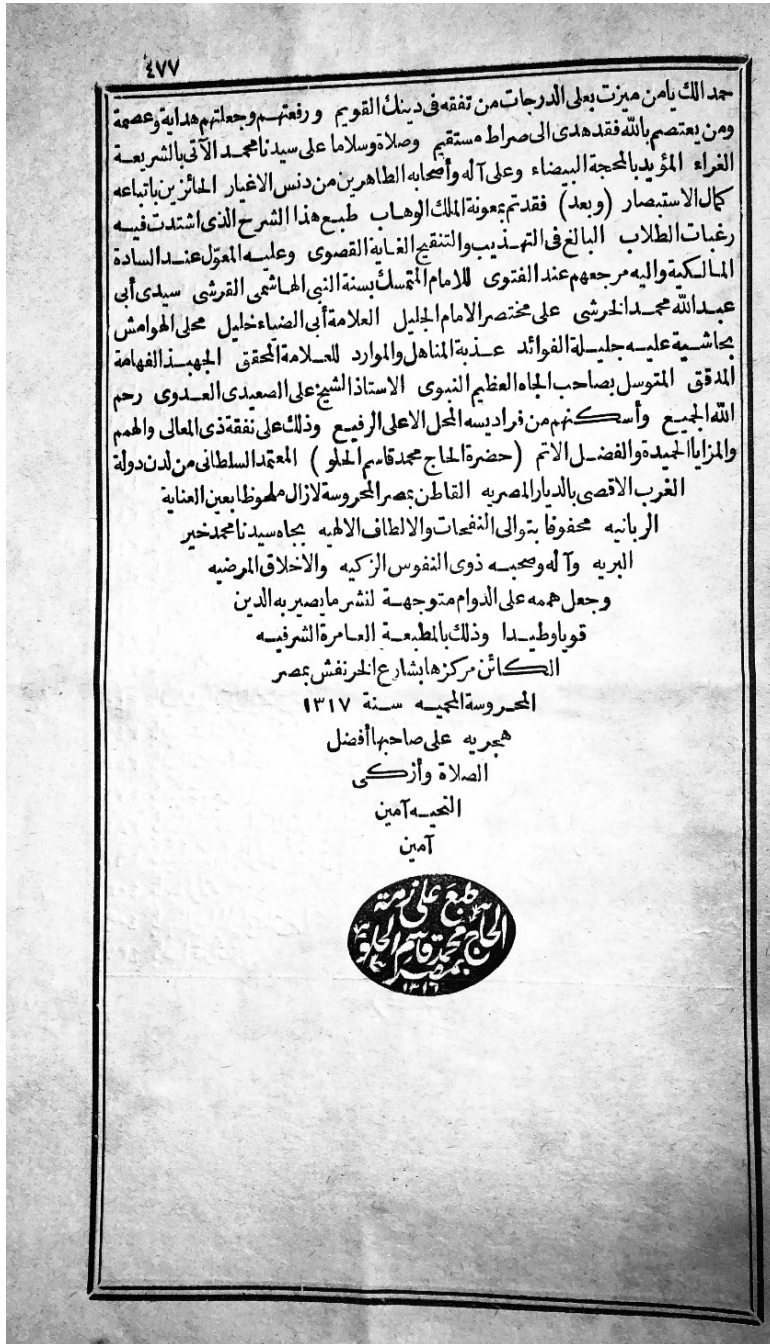 ٤٧٧
حمدا لك يا من ميزت بعلى الدرجات من تفقه فى دينك القويم ورفعتهم وجعلتهم هداية وعصمة
ومن يعتصم بالله فقد هدى الى صراط مستقيم وصلاة وسلاما على سيدنا محمد الآتى بالشريعة
الغراء المؤيد بالمحجة البيضاء وعلى آله وأصحابه الطاهرين من دنس الاغيار الحائزين باتباعه
كمال الاستبصار (وبعد) فقد تم بمعونة الملك الوهاب طبع هذا الشرح الذى اشتدت فيه
رغبات الطلاب البالغ فى التهذيب والتنقيح الغاية القصوى وعليه المعوّل عند السادة
المالكية واليه مرجعهم عند الفتوى للامام المتمسك بسنة النبى الهاشمى القرشى سيدى أبى
عبد الله محمد الخرشى على مختصر الامام الجليل العلامة أبى الضياء خليل محلى الهوامش
بحاشية عليه جليلة الفوائد عذبة المناهل والموارد للعلامة المحقق الجهبذ الفهامة
المدقق المتوسل بصاحب الجاه العظيم النبوى الاستاذ الشيخ على الصعيدى العدوى رحم
الله الجميع وأسكنهم من فراديسه المحل الاعلى الرفيع وذلك على نفقة ذى المعالى والهمم
والمزايا الحميدة والفضل الاتم (حضرة الحاج محمد قاسم الحلو) المعتمد السلطانى من لدن دولة
الغرب الاقصى بالديار المصريه القاطن بمصر المحروسة لازال ملحوظا بعين العناية
الربانيه محفوفا بتوالى النفحات والالطاف الالهيه بجاه سيدنا محمد خير
البريه وآله وصحبه ذوى النفوس الزكيه والاخلاق المرضيه
وجعل هممه على الدوام متوجهة لنشر ما يصير به الدين
قويا وطيدا وذلك بالمطبعة العامرة الشرفيه
الكائن مركزها بشارع الخرنفش بمصر
المحروسة المحميه سنة ١٣١٧
هجريه على صاحبها أفضل
الصلاة وأزكى
التحيه آمين
آمين
طبع على ذمة
الحاج محمد قاسم الحلو
بمصر
١٣١٦